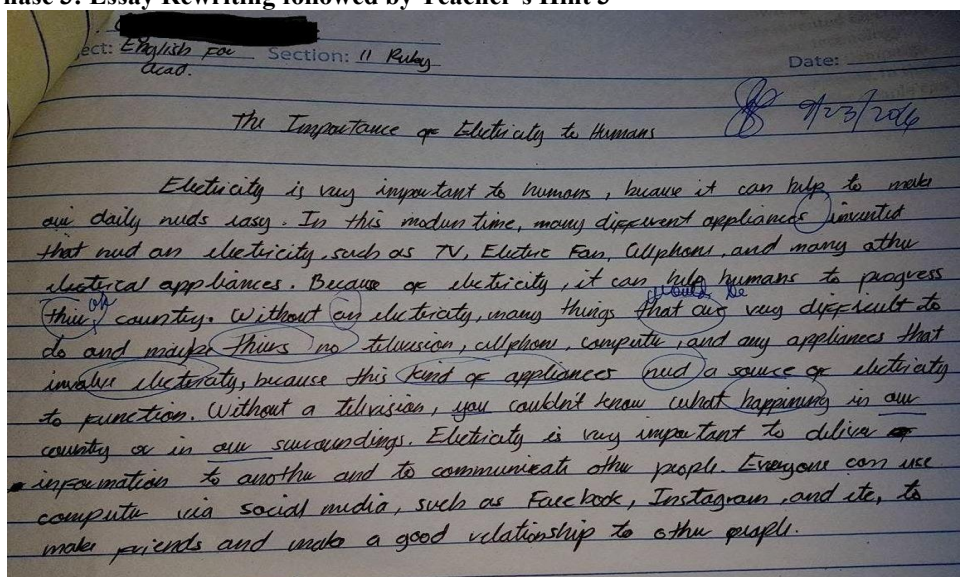 Phase 3: Essay Rewriting followed by Teacher's Hint 3
ject: English For Section: 11 Ruby Date:
Acad.
9/23/2016
The Importance of Eletricity to Humans
Eletricity is very important to humans, because it can help to make
our daily needs easy. In this modern time, many different appliances invented
that need an electricity such as TV, Eletric Fan, Cellphone, and many other
electerical appliances. Because of electricity, it can help humans to progress
would be
thier country. Without an electricaty, many things that are very difficult to
do and maybe thiers no television, cellphone, computer, and any appliances that
involve electericaty, because this kind of appliances need a source of eletricity
to function. Without a television, you couldn't know what happining in our
country or in our surroundings. Eletricity is very important to deliver
information to another and to communicate other people. Everyone can use
computer via social media, such as Facebook, Instagram, and etc, to
make friends and make a good relationship to other people.